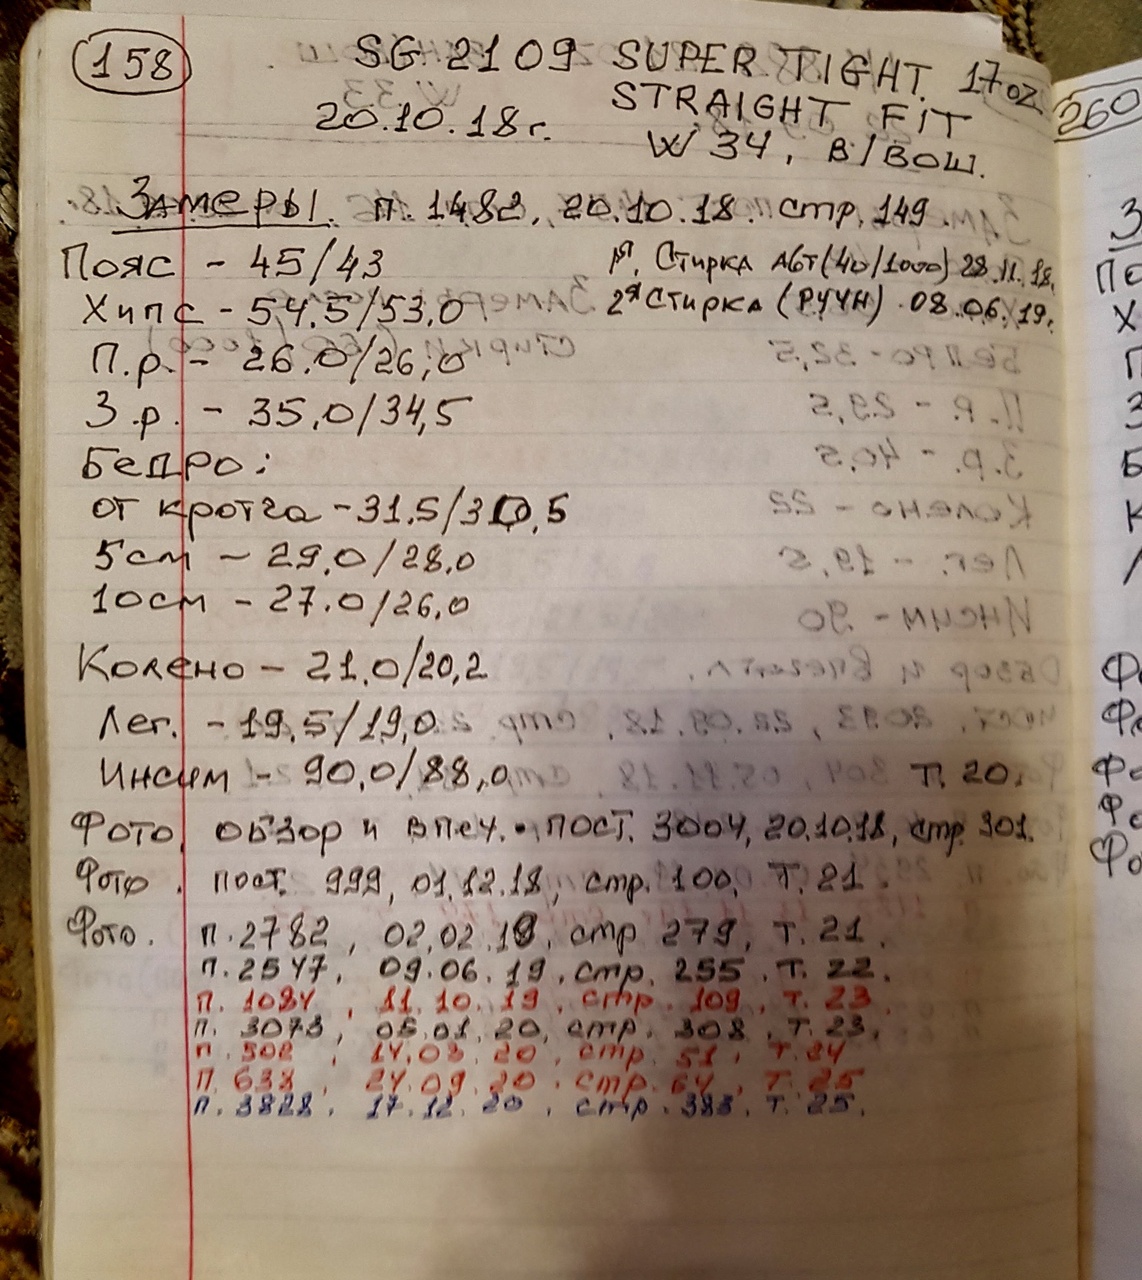 158
SG 2109 SUPER TIGHT 17oz
STRAIGHT FIT
20.10.18г.
W 34, В/ВОШ.
260
Замеры. п. 1482, 20.10.18. стр. 149.
Пояс - 45/43
1я. Стирка АВТ(40/1000) 28.11.18.
Хипс - 54,5/53,0
2я Стирка (РУЧН) 08.06.19г.
П.р. - 26.0/26,0
З.р. - 35,0/34,5
Бедро:
от кротча - 31,5/30,5
5см - 29,0/28,0
10см - 27.0/26,0
Колено - 21,0/20,2
Лег. - 19,5/19,0
Инсим - 90,0/88,0 Т. 20.
Фото, обзор и впеч. • пост. 3004, 20.10.18, стр. 301.
Фото. пост. 999, 01.12.18, стр. 100, Т. 21.
Фото. п. 2782, 02.02.19, стр 279, Т. 21.
п. 2547, 09.06.19, стр. 255. Т. 22.
п. 1084, 11.10.19, стр. 109, Т. 23
п. 3073, 05.01.20, стр. 308, Т. 23.
п. 502, 14.03.20, стр. 51, Т. 24
п. 638, 24.09.20, стр. 64, Т. 25
п. 3828, 17.12.20, стр. 383, Т. 25.